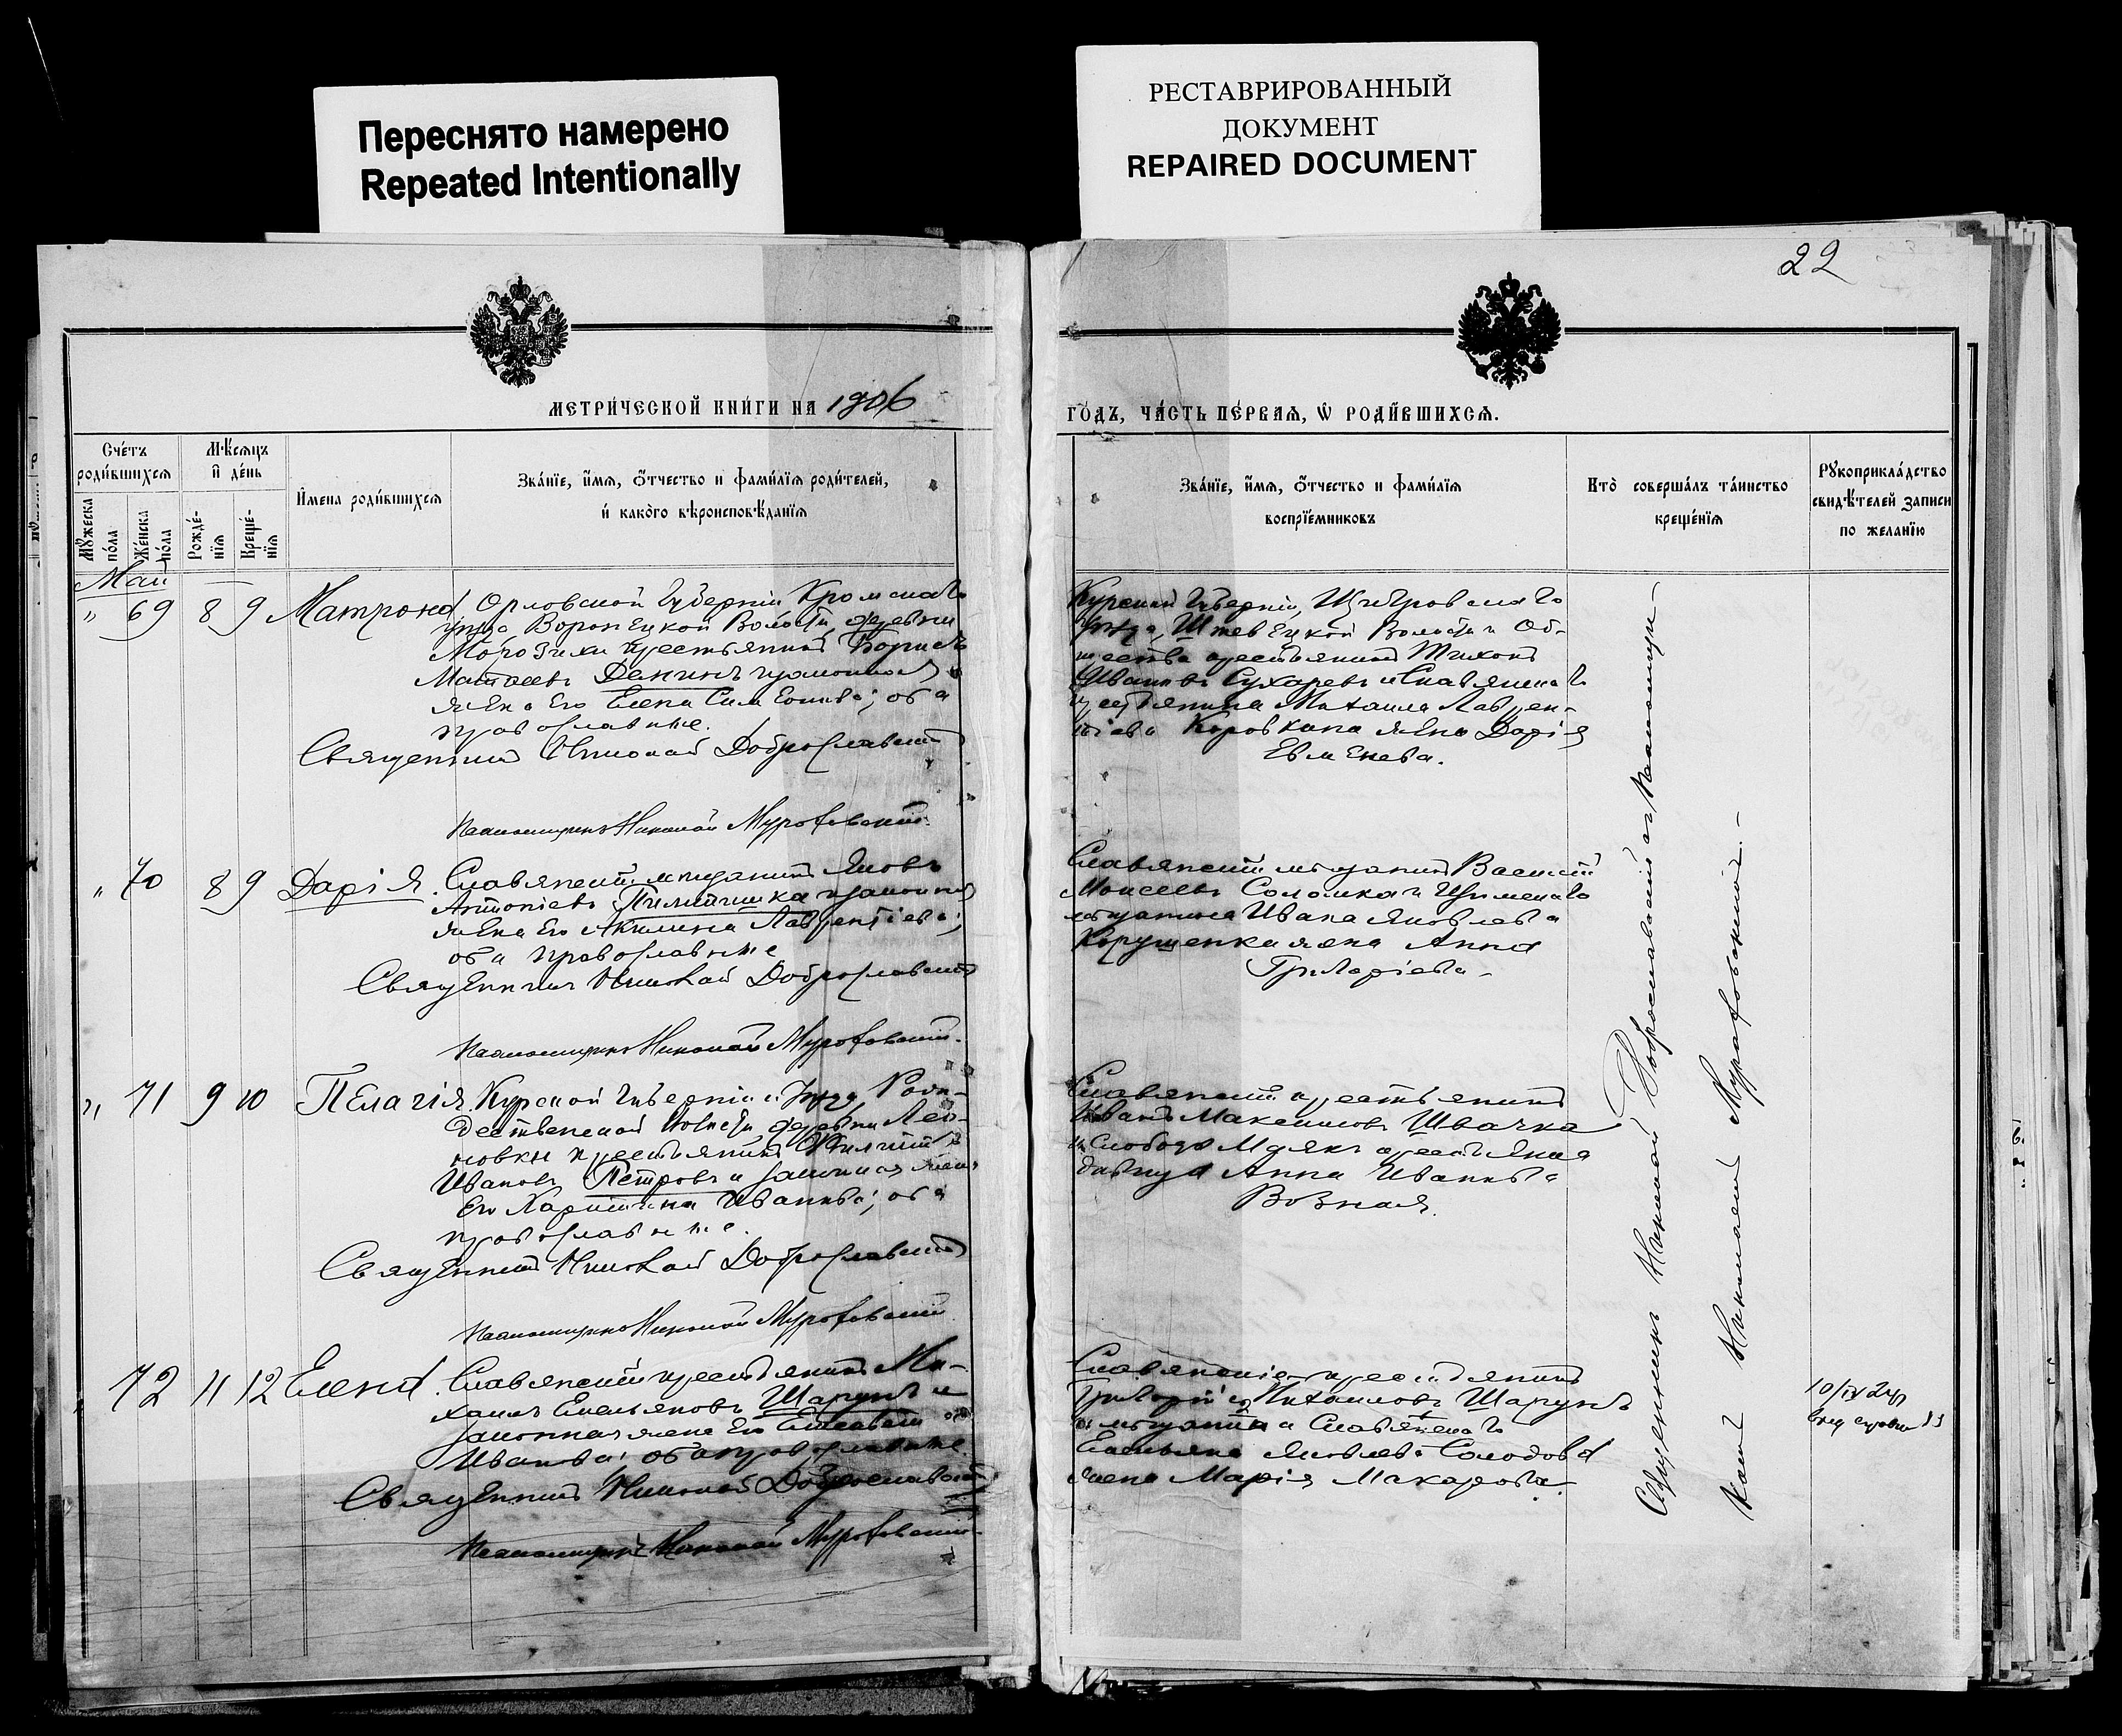 Переснято намерено
Repeated Intentionally
РЕСТАВРИРОВАННЫЙ
ДОКУМЕНТ
REPAIRED DOCUMENT
22
МЕТРИ́ЧЕСКОЙ КНИ́ГИ НА 1906
ГО́ДЪ, ЧА́СТЬ ПЕ́РВАЯ, Ѡ РОДИ́ВШИХСЯ.
Сче́тъ
роди́вшихся
Мꙋжеска
по́ла
Же́нска
по́ла
Мѣ́сяцъ
и де́нь
Рожде́-
нія
Креще́-
нія
Имена роди́вшихся
Зва́ніе, и́мя, о́тчество и фами́лія роди́телей,
и како́го вѣроисповѣ́данія
Зва́ніе, и́мя, о́тчество и фами́лія
воспріе́мниковъ
Кто̀ соверша́лъ та́инство
креще́нія
Рꙋкоприкла́дство
свидѣ́телей записи
по жела́нію
Май
" 69 8 9 Матрона
Орловской Губерніи Кромскаго
уѣзда Воронецкой Волости, деревни
Морозихи крестьянинъ Борисъ
Матвеевъ Данинъ и законная
жена его Елена Симеонова; оба
православные.
Священникъ Николай Доброславскій
Псаломщикъ Николай Мурафовскій.
Курской Губерніи, Щигровскаго
уѣзда, Волости и Об-
щества крестьянинъ Тихонъ
Ивановъ Сухаревъ и Славянскаго
крестьянина Михаила Лаврен-
тіева Коровкина жена Дарія
Евменева.
" 70 8 9 Дарія.
Славянскій мѣщанинъ Яковъ
Антоніевъ и законная
жена его Акилина Лаврентіева;
оба православные
Священникъ Николай Доброславскій
Псаломщикъ Николай Мурафовскій.
Славянскій мѣщанинъ Василій
Моисеевъ Соломка и Изюмскаго
мѣщанина Ивана Яковлева
жена Анна
" 71 9 10 Пелагія.
Курской Губерніи и уѣзда, Рож-
дественской Волости деревни
крестьянинъ Филиппъ
Ивановъ Петровъ и законная жена
его Харитина Иванова; оба
православные.
Священникъ Николай Доброславскій
Псаломщикъ Николай Мурафовскій
Славянскій крестьянинъ
Иванъ Максимовъ Швачка
и Слободы Маякъ крестьянка
дѣвица Анна Иванова
Возная.
72 11 12 Елена.
Славянскій крестьянинъ Ми-
хаилъ Емельяновъ Шарунъ и
законная жена его Елисавета
Иванова; оба православные.
Священникъ Николай Доброславскій
Псаломщикъ Николай Мурафовскій
Славянскіе крестьянинъ
Григорій Михаиловъ Шарунъ
и мѣщанина Славянскаго
Яковлева Солодова
жена Марія Макарова.
Священникъ Николай Доброславскій съ Псаломщи-
комъ Николаемъ Мурафовскимъ.
10/IX 24